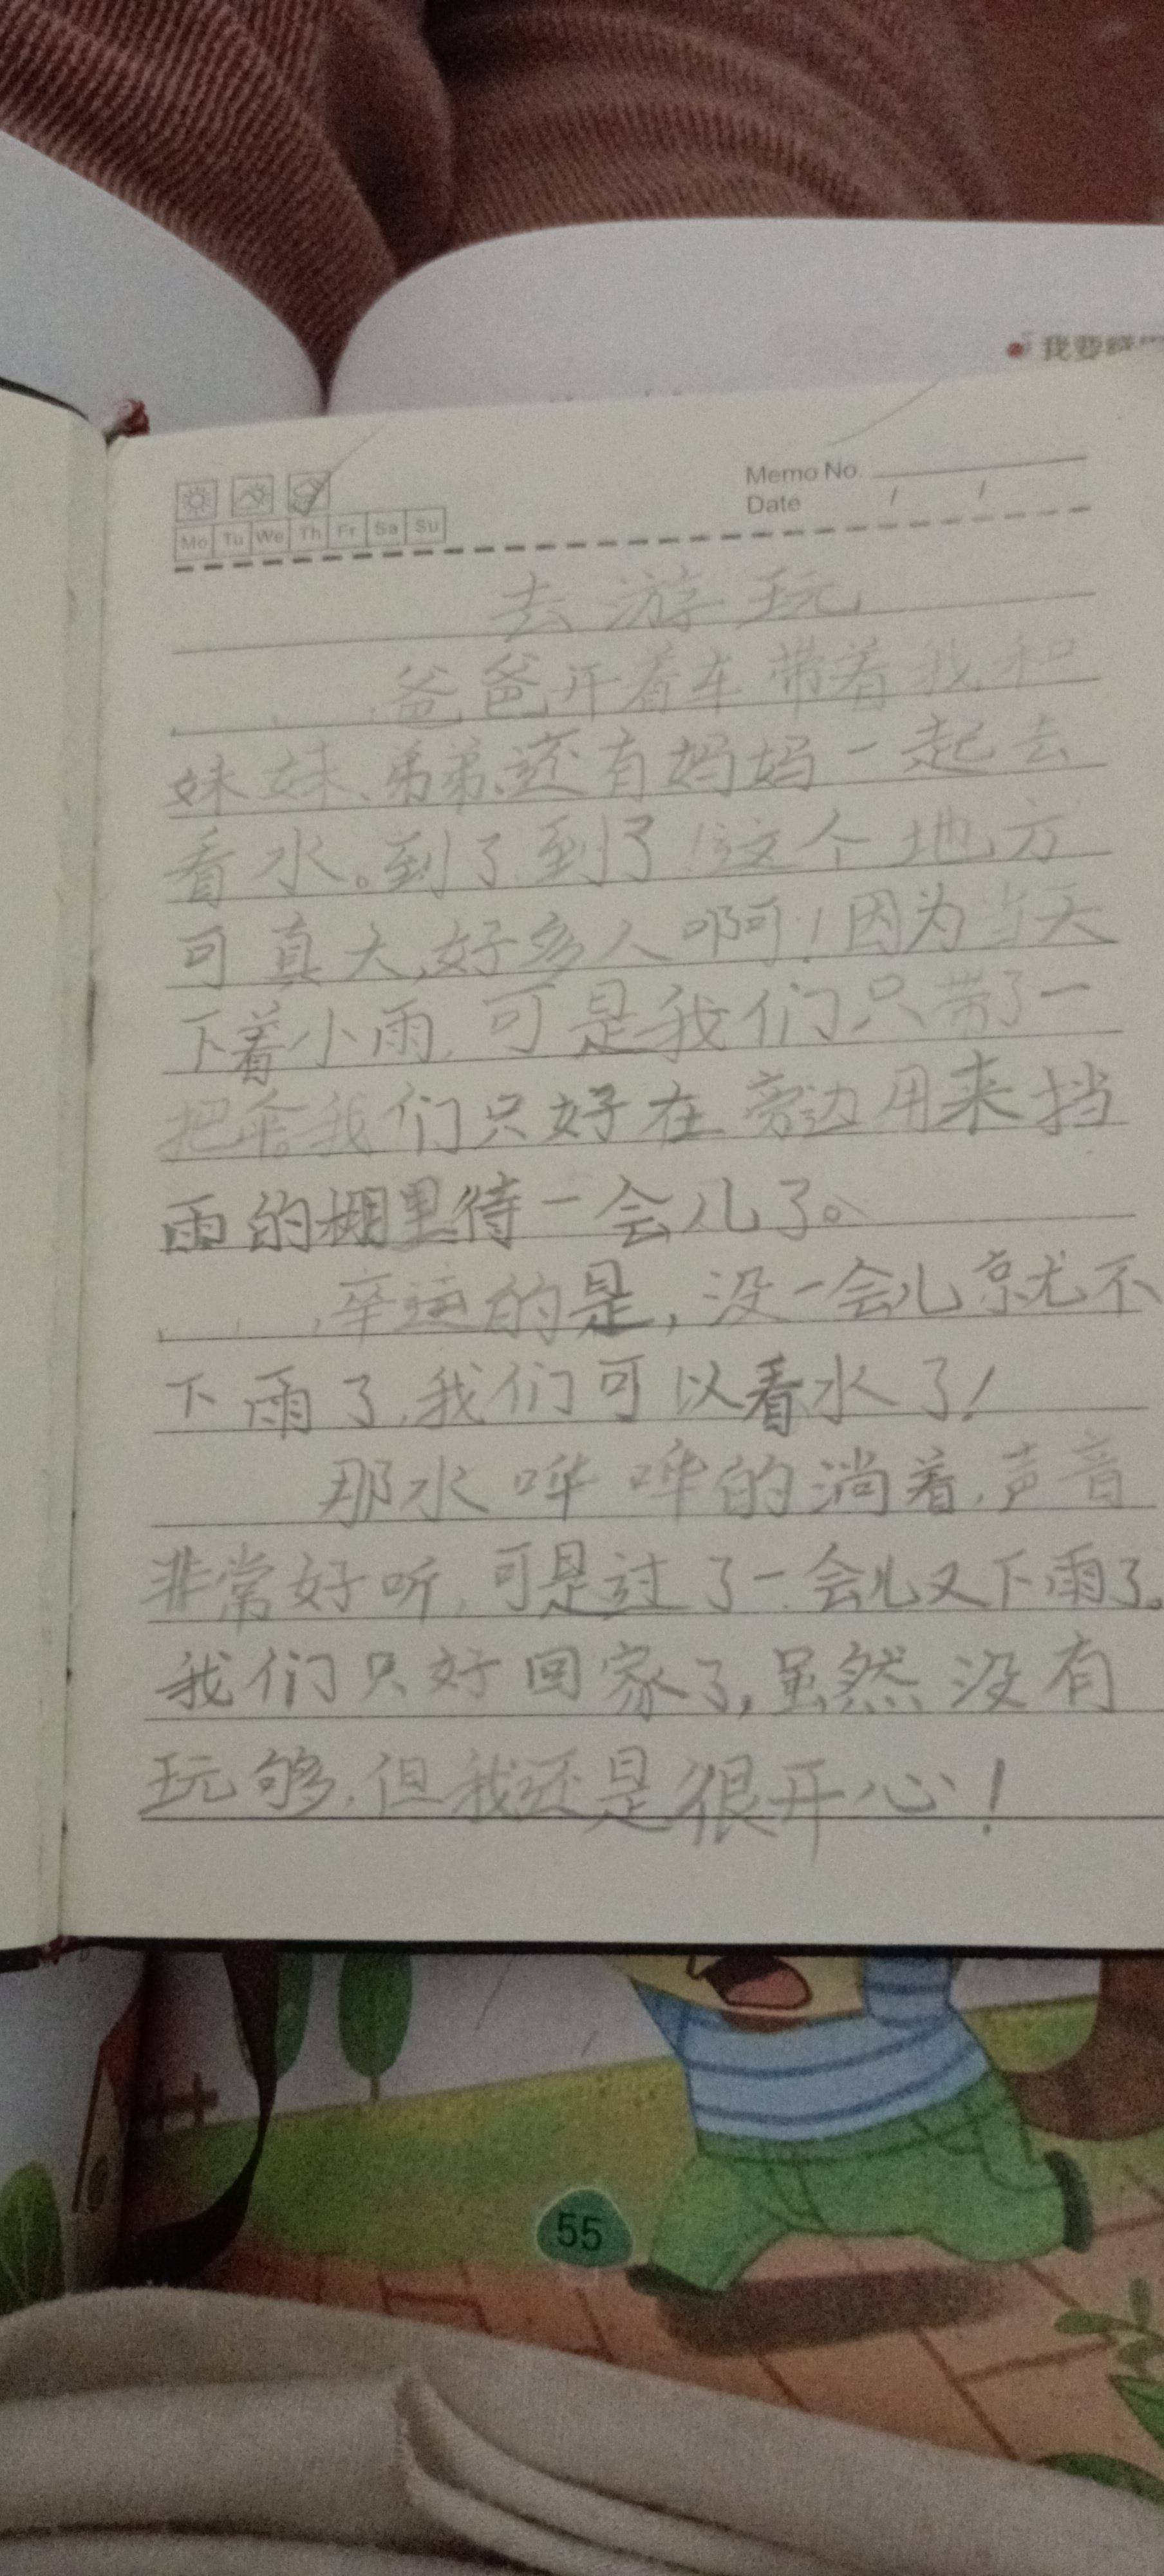 我要
Memo No.
Date / /
Mo Tu We Th Fr Sa Su
去游玩
爸爸开着车带着我和
妹妹、弟弟、还有妈妈一起去
看水。到了到了！这个地方
可真大,好多人啊！因为当天
下着小雨,可是我们只带了一
把伞。我们只好在旁边用来挡
雨的棚里待一会儿了。
幸运的是,没一会儿就不
下雨了,我们可以看水了！
那水哗哗的淌着,声音
非常好听,可是过了一会儿又下雨了。
我们只好回家了,虽然没有
玩够,但我还是很开心！
55